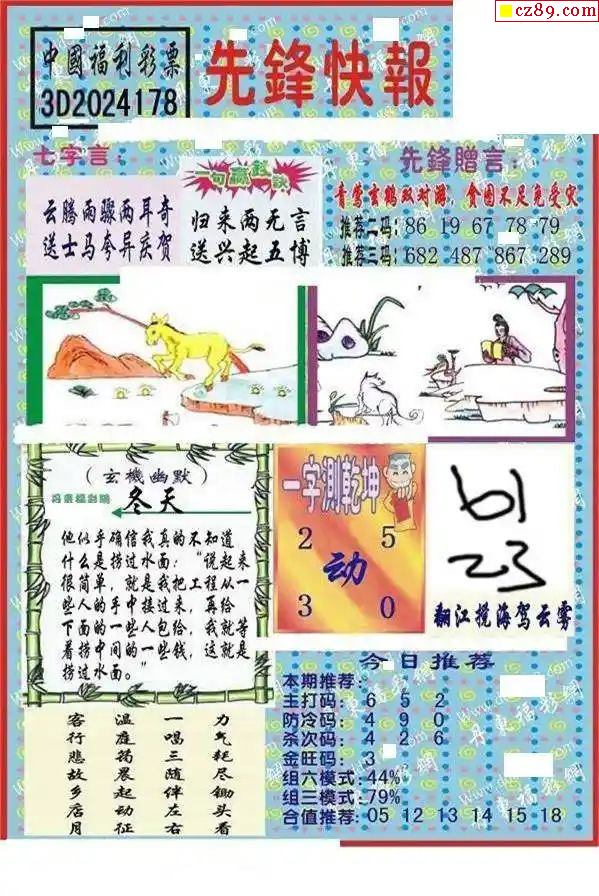 cz89.com
中國福利彩票
3D2024178
先鋒快報
七字言：
云腾雨骤两耳奇
送士马夸异庆贺
一句贏錢訣
归来两无言
送兴起五博
先鋒贈言：
青莺玄鹤双对游，食困不足免受灾
推荐二码：86 19 67 78 79
推荐三码：682 487 867 289
（玄機幽默）
冬天
他似乎确信我真的不知道
什么是捞过水面："说起来
很简单，就是我把工程从一
些人的手中接过来，再给
下面的一些人包给，我就等
着捞中间的一些钱，这就是
捞过水面。"
一字测乾坤
2 5
动
3 0
61
23
翻江搅海驾云雾
客行悲故乡店月
温庭筠晨起动征
一唱三随伴左右
力气耗尽锄头看
今日推荐
本期推荐：
主打码：6 5 2
防冷码：4 9 0
杀次码：4 2 6
金旺码：3
组六模式：44%
组三模式：79%
合值推荐：05 12 13 14 15 18